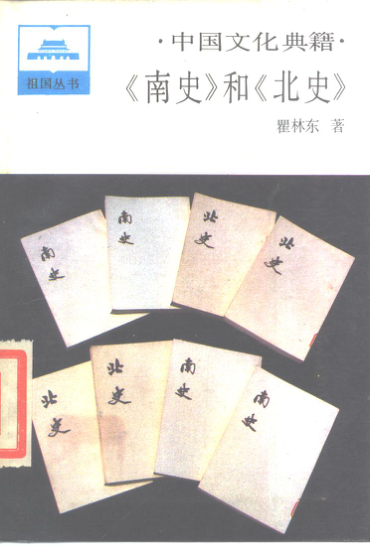 ·中国文化典籍·
祖国丛书
《南史》和《北史》
瞿林东 著
南史
南史
北史
北史
北史
北史
南史
南史